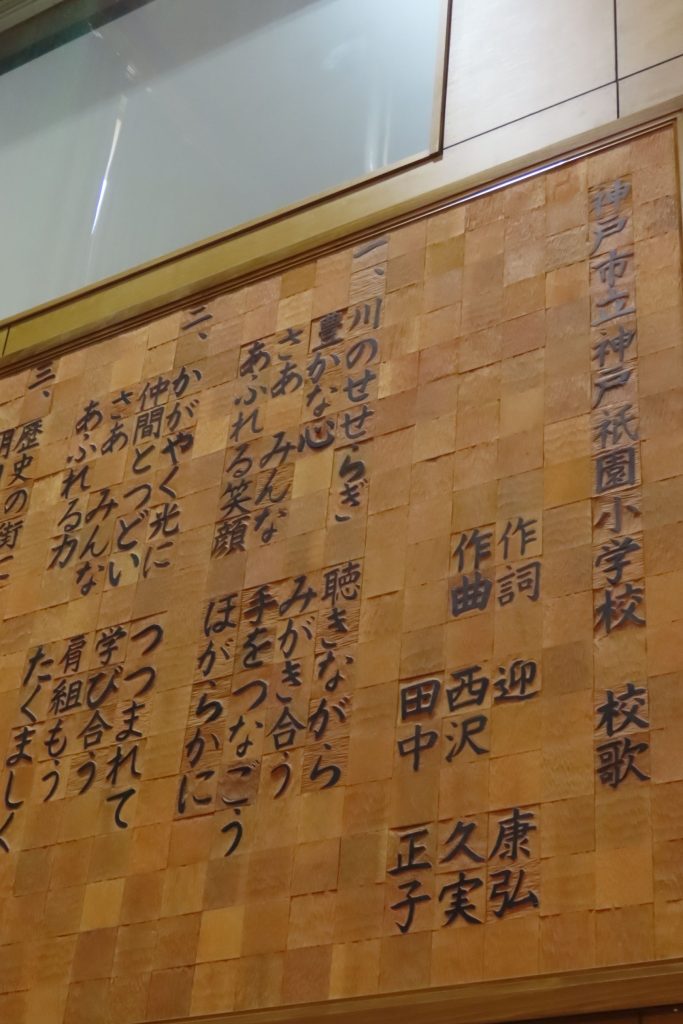 神戸市立神戸祇園小学校 校歌
作詞 迎 康弘
作曲 西沢 久実
田中 正子
一、川のせせらぎ 聴きながら
豊かな心 みがき合う
さあ みんな 手をつなごう
あふれる笑顔 ほがらかに
二、かがやく光に つつまれて
仲間とつどい 学び合う
さあ みんな 肩組もう
あふれる力 たくましく
三、歴史の街に